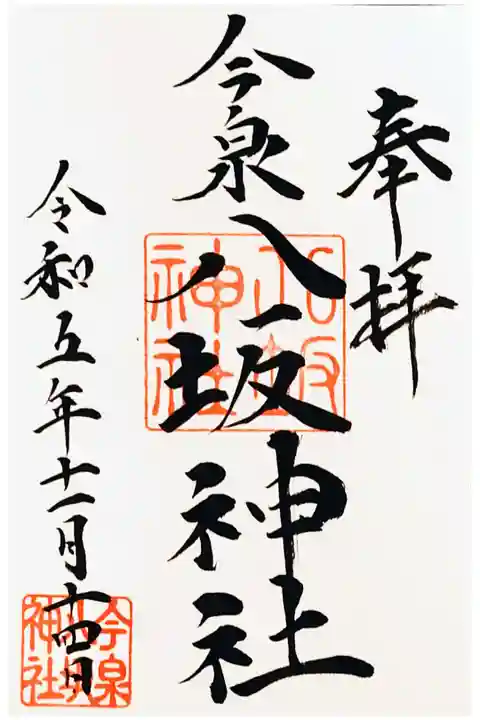 奉拝
今泉八坂神社
令和五年十一月十四日
八坂神社
今泉八坂神社